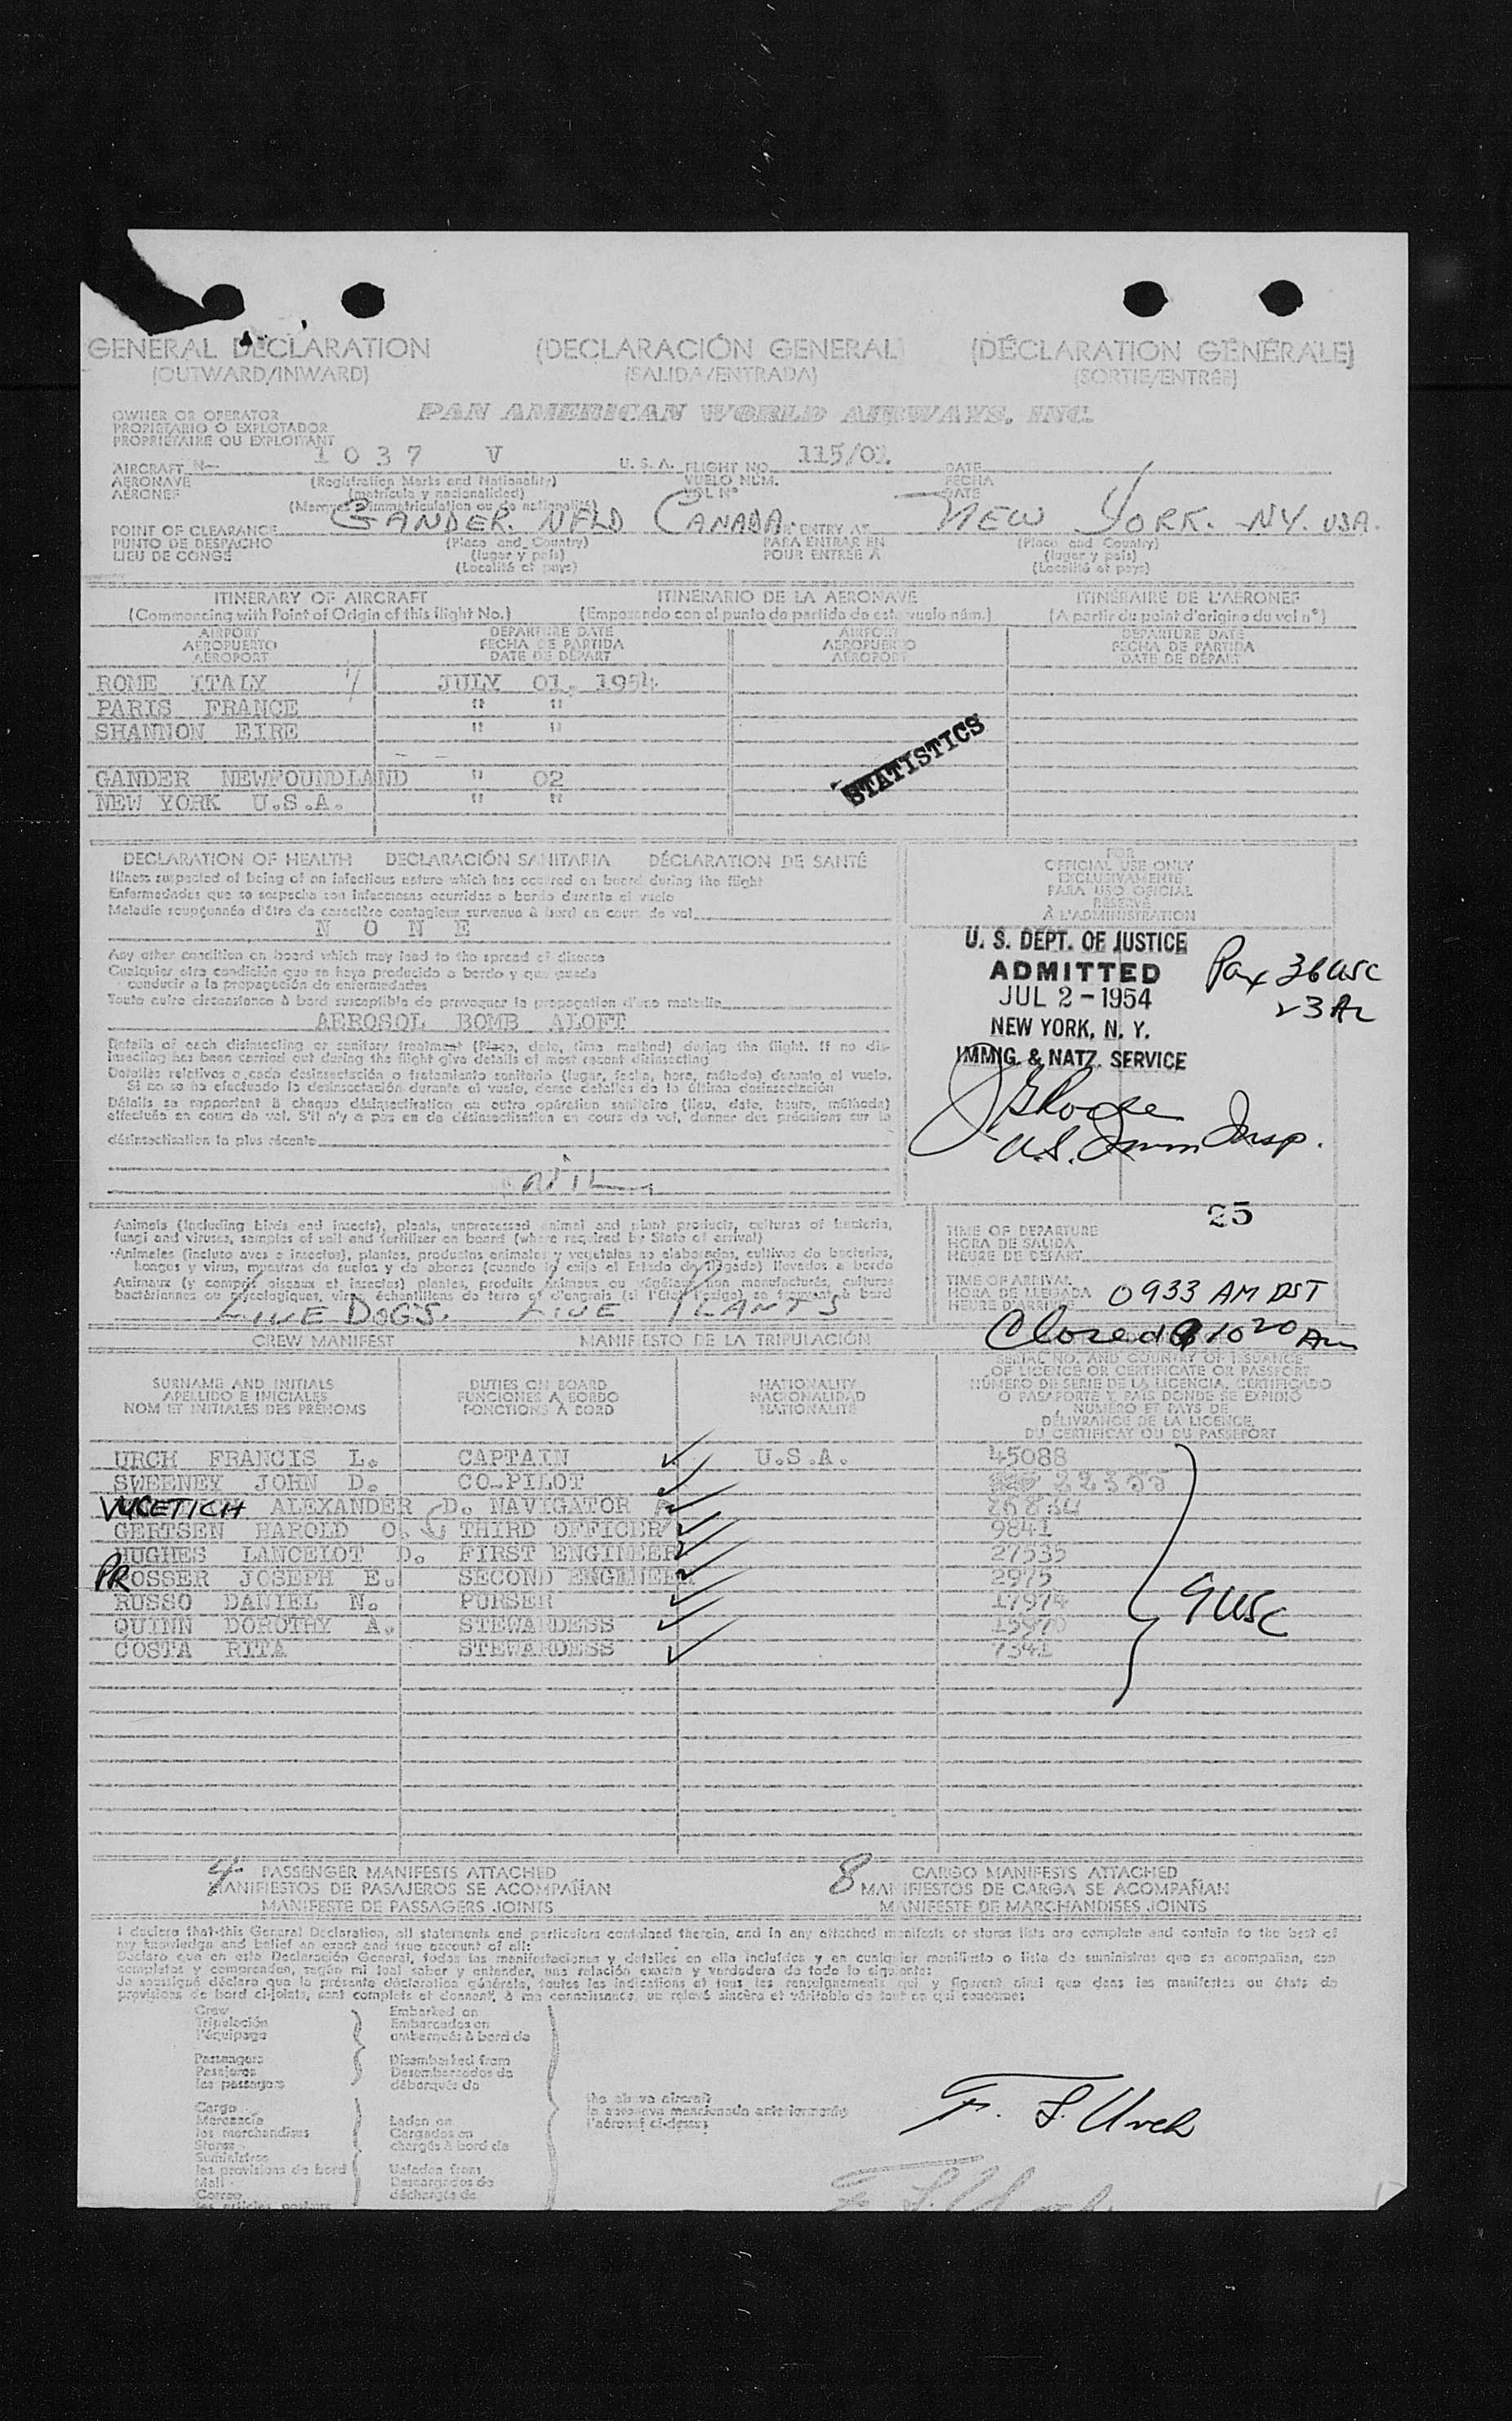 GENERAL DECLARATION (DECLARACIÓN GENERAL) (DÉCLARATION GÉNÉRALE)
(OUTWARD/INWARD) (SALIDA/ENTRADA) (SORTIE/ENTRÉE)
OWNER OR OPERATOR
PROPIETARIO O EXPLOTADOR
PROPRIÉTAIRE OU EXPLOITANT
PAN AMERICAN WORLD AIRWAYS, INC.
AIRCRAFT N- 1037 V U.S.A. FLIGHT NO. 115/01. DATE
AERONAVE (Registration Marks and Nationality) VUELO NÚM. FECHA
AÉRONEF (matrícula y nacionalidad) VOL Nº DATE
(Marques d'immatriculation ou de nationalité)
POINT OF CLEARANCE GANDER. NFLD CANADA. ENTRY AT NEW YORK. NY. USA.
PUNTO DE DESPACHO (Place and Country) PARA ENTRAR EN (Place and Country)
LIEU DE CONGÉ (lugar y país) POUR ENTRÉE À (lugar y país)
(Localité et pays) (Localité et pays)
ITINERARY OF AIRCRAFT ITINERARIO DE LA AERONAVE ITINÉRAIRE DE L'AÉRONEF
(Commencing with Point of Origin of this flight No.) (Empezando con el punto de partida de este vuelo núm.) (A partir du point d'origine du vol nº)
AIRPORT DEPARTURE DATE AIRPORT DEPARTURE DATE
AEROPUERTO FECHA DE PARTIDA AEROPUERTO FECHA DE PARTIDA
AÉROPORT DATE DE DÉPART AÉROPORT DATE DE DÉPART
ROME ITALY JULY 01, 1954
PARIS FRANCE " "
SHANNON EIRE " "
STATISTICS
GANDER NEWFOUNDLAND " 02
NEW YORK U.S.A. " "
DECLARATION OF HEALTH DECLARACIÓN SANITARIA DÉCLARATION DE SANTÉ
Illness suspected of being of an infectious nature which has occured on board during the flight
Enfermedades que se sospecha son infecciosas ocurridas a bordo durante el vuelo
Maladie soupçonnée d'être de caractère contagieux survenue à bord en cours de vol
N O N E
Any other condition on board which may lead to the spread of disease
Cualquier otra condición que se haya producido a bordo y que pueda
conducir a la propagación de enfermedades
Toute autre circonstance à bord susceptible de provoquer la propagation d'une maladie
AEROSOL BOMB ALOFT
Details of each disinsecting or sanitary treatment (Place, date, time method) during the flight. If no dis-
insecting has been carried out during the flight give details of most recent disinsecting
Detalles relativos a cada desinsectación o tratamiento sanitario (lugar, fecha, hora, método) durante el vuelo.
Si no se ha efectuado la desinsectación durante el vuelo, dense detalles de la última desinsectación
Détails se rapportant à chaque désinsectisation ou autre opération sanitaire (lieu, date, heure, méthode)
effectuée en cours de vol. S'il n'y a pas eu de désinsectisation en cours de vol, donner des précisions sur la
désinsectisation la plus récente
FOR
OFFICIAL USE ONLY
EXCLUSIVAMENTE
PARA USO OFICIAL
RÉSERVÉ
À L'ADMINISTRATION
U. S. DEPT. OF JUSTICE
ADMITTED
JUL 2 - 1954
NEW YORK, N. Y.
IMMIG. & NATZ. SERVICE
Pax 36 USC
23 AL
U.S. Imm Insp.
Animals (including birds and insects), plants, unprocessed animal and plant products, cultures of bacteria,
fungi and viruses, samples of soil and fertilizer on board (where required by State of arrival)
Animales (incluto aves e insectos), plantas, productos animales y vegetales no elaborados, cultivos de bacterias,
hongos y virus, muestras de suelos y de abonos (cuando lo exija el Estado de llegada) llevados a bordo
Animaux (y compris oiseaux et insectes) plantes, produits animaux ou végétaux non manufacturés, cultures
bactériennes ou mycologiques, virus, échantillons de terre et d'engrais (si l'État l'exige) se trouvant à bord
LIVE DOGS. LIVE PLANTS
25
TIME OF DEPARTURE
HORA DE SALIDA
HEURE DE DÉPART
TIME OF ARRIVAL
HORA DE LLEGADA 0933 AM DST
HEURE D'ARRIVÉE
Closed @ 1020 AM
CREW MANIFEST MANIFIESTO DE LA TRIPULACIÓN
SURNAME AND INITIALS DUTIES ON BOARD NATIONALITY
APELLIDO E INICIALES FUNCIONES A BORDO NACIONALIDAD
NOM ET INITIALES DES PRÉNOMS FONCTIONS À BORD NATIONALITÉ
SERIAL NO. AND COUNTRY OF ISSUANCE
OF LICENCE OR CERTIFICATE OR PASSPORT
NÚMERO DE SERIE DE LA LICENCIA, CERTIFICADO
O PASAPORTE Y PAÍS DONDE SE EXPIDIÓ
NUMÉRO ET PAYS DE
DÉLIVRANCE DE LA LICENCE,
DU CERTIFICAT OU DU PASSEPORT
URCH FRANCIS L. CAPTAIN U.S.A. 45088
SWEENEY JOHN D. CO-PILOT
VUCETICH ALEXANDER D. NAVIGATOR
GERTSEN HAROLD O. THIRD OFFICER 9841
HUGHES LANCELOT D. FIRST ENGINEER 27535
PROSSER JOSEPH E. SECOND ENGINEER 2975
RUSSO DANIEL N. PURSER 17974
QUINN DOROTHY A. STEWARDESS 15970
COSTA RITA STEWARDESS 7341
9 USC
4 PASSENGER MANIFESTS ATTACHED 8 CARGO MANIFESTS ATTACHED
MANIFIESTOS DE PASAJEROS SE ACOMPAÑAN MANIFIESTOS DE CARGA SE ACOMPAÑAN
MANIFESTE DE PASSAGERS JOINTS MANIFESTE DE MARCHANDISES JOINTS
I declare that this General Declaration, all statements and particulars contained therein, and in any attached manifests or stores lists are complete and contain to the best of
my knowledge and belief an exact and true account of all:
Declaro que en esta Declaración General, todas las manifestaciones y detalles en ella incluídos y en cualquier manifiesto o lista de suministros que se acompañan, son
completos y comprenden, según mi leal saber y entender, una relación exacta y verdadera de todo lo siguiente:
Je soussigné déclare que la présente déclaration générale, toutes les indications et tous les renseignements qui y figurent ainsi que dans les manifestes ou états de
provisions de bord ci-joints, sont complets et donnent, à ma connaissance, un relevé sincère et véritable de tout ce qui concerne:
Crew Embarked on
Tripulación Embarcados en
l'équipage embarqués à bord de
Passengers Disembarked from
Pasajeros Desembarcados de
les passagers débarqués de
Cargo
Mercancía Laden on
les marchandises Cargados en
Stores chargés à bord de
Suministros
les provisions de bord Unladen from
Mail Descargados de
Correo déchargés de
les articles postaux
the above aircraft
la aeronave mencionada anteriormente
l'aéronef ci-dessus
F. L. Urch
F. L. Urch